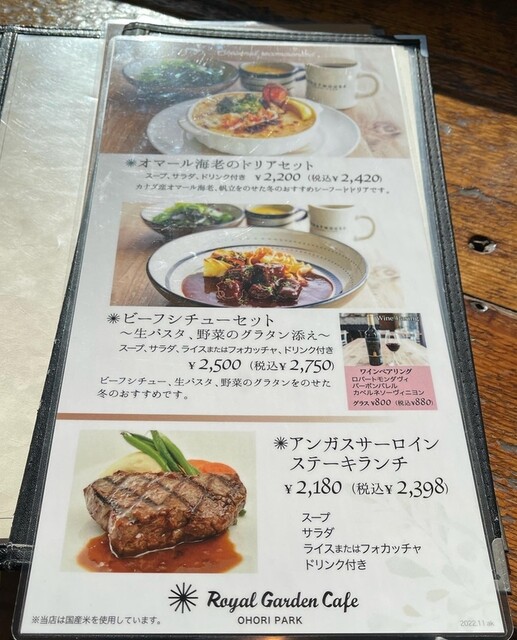 ✳オマール海老のドリアセット
スープ、サラダ、ドリンク付き ¥2,200(税込¥2,420)
カナダ産オマール海老、帆立をのせた冬のおすすめシーフードドリアです。
✳ビーフシチューセット
〜生パスタ、野菜のグラタン添え〜
スープ、サラダ、ライスまたはフォカッチャ、ドリンク付き
¥2,500(税込¥2,750)
ビーフシチュー、生パスタ、野菜のグラタンをのせた
冬のおすすめです。
ワインペアリング
ロバートモンダヴィ
バーボンバレル
カベルネソーヴィニヨン
グラス¥800(税込¥880)
✳アンガスサーロイン
ステーキランチ
¥2,180(税込¥2,398)
スープ
サラダ
ライスまたはフォカッチャ
ドリンク付き
Royal Garden Cafe
OHORI PARK
※当店は国産米を使用しています。
2022.11